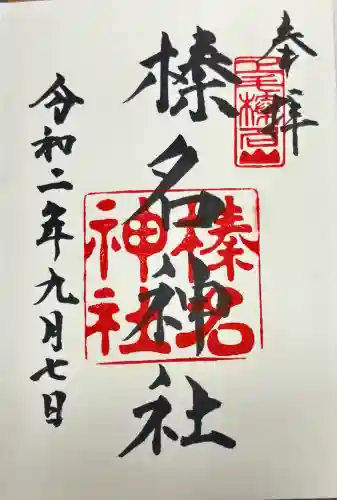 奉拝
上毛榛名山
榛名神社
榛名
神社
令和二年九月七日